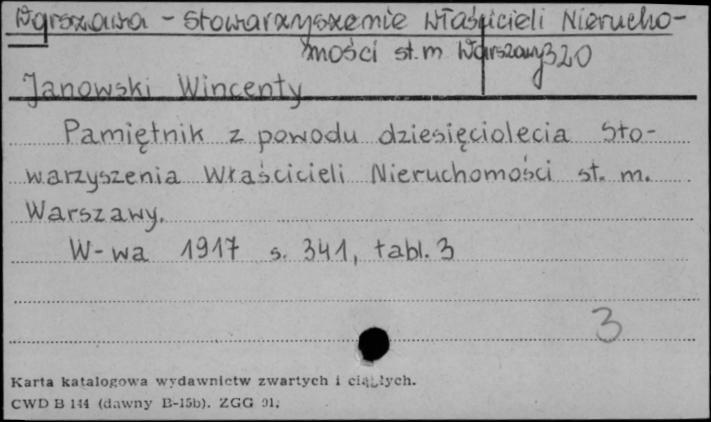 Warszawa - Stowarzyszenie Właścicieli Nierucho-
mości st. m Warszawy 320
Janowski Wincenty
Pamiętnik z powodu dziesięciolecia Sto-
warzyszenia Właścicieli Nieruchomości st. m.
Warszawy.
W-wa 1917 s. 341, tabl. 3
3
Karta katalogowa wydawnictw zwartych i ciągłych.
CWD B 144 (dawny B-15b). ZGG 91;